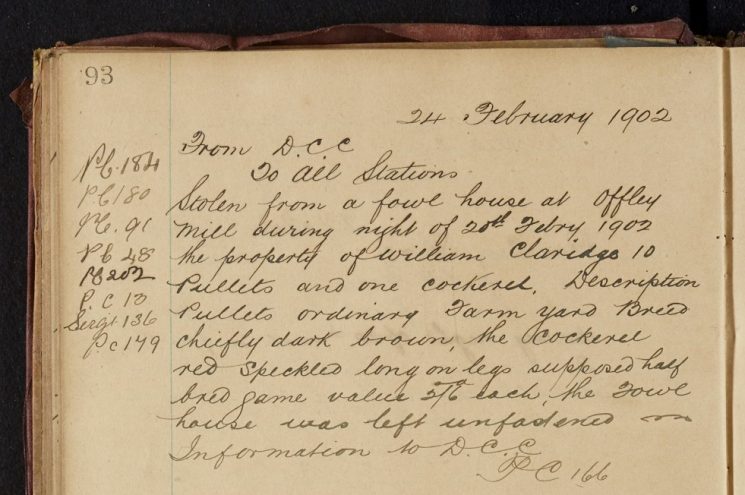 93
24 February 1902
From D.C.C
To all Stations
Stolen from a fowl house at Offley
Mill during night of 20th Febry 1902
the property of William Claridge 10
Pullets and one cockerel, Description
Pullets ordinary Farm yard Breed
chiefly dark brown, the Cockerel
red speckled long on legs supposed half
bred game value each, the Fowl
house was left unfastened
Information to D.C.C.
PC 166
PC. 184
P.C 180
PC. 91
PC 48
PC 202
P.C 13
Sergt 136
Pc 179